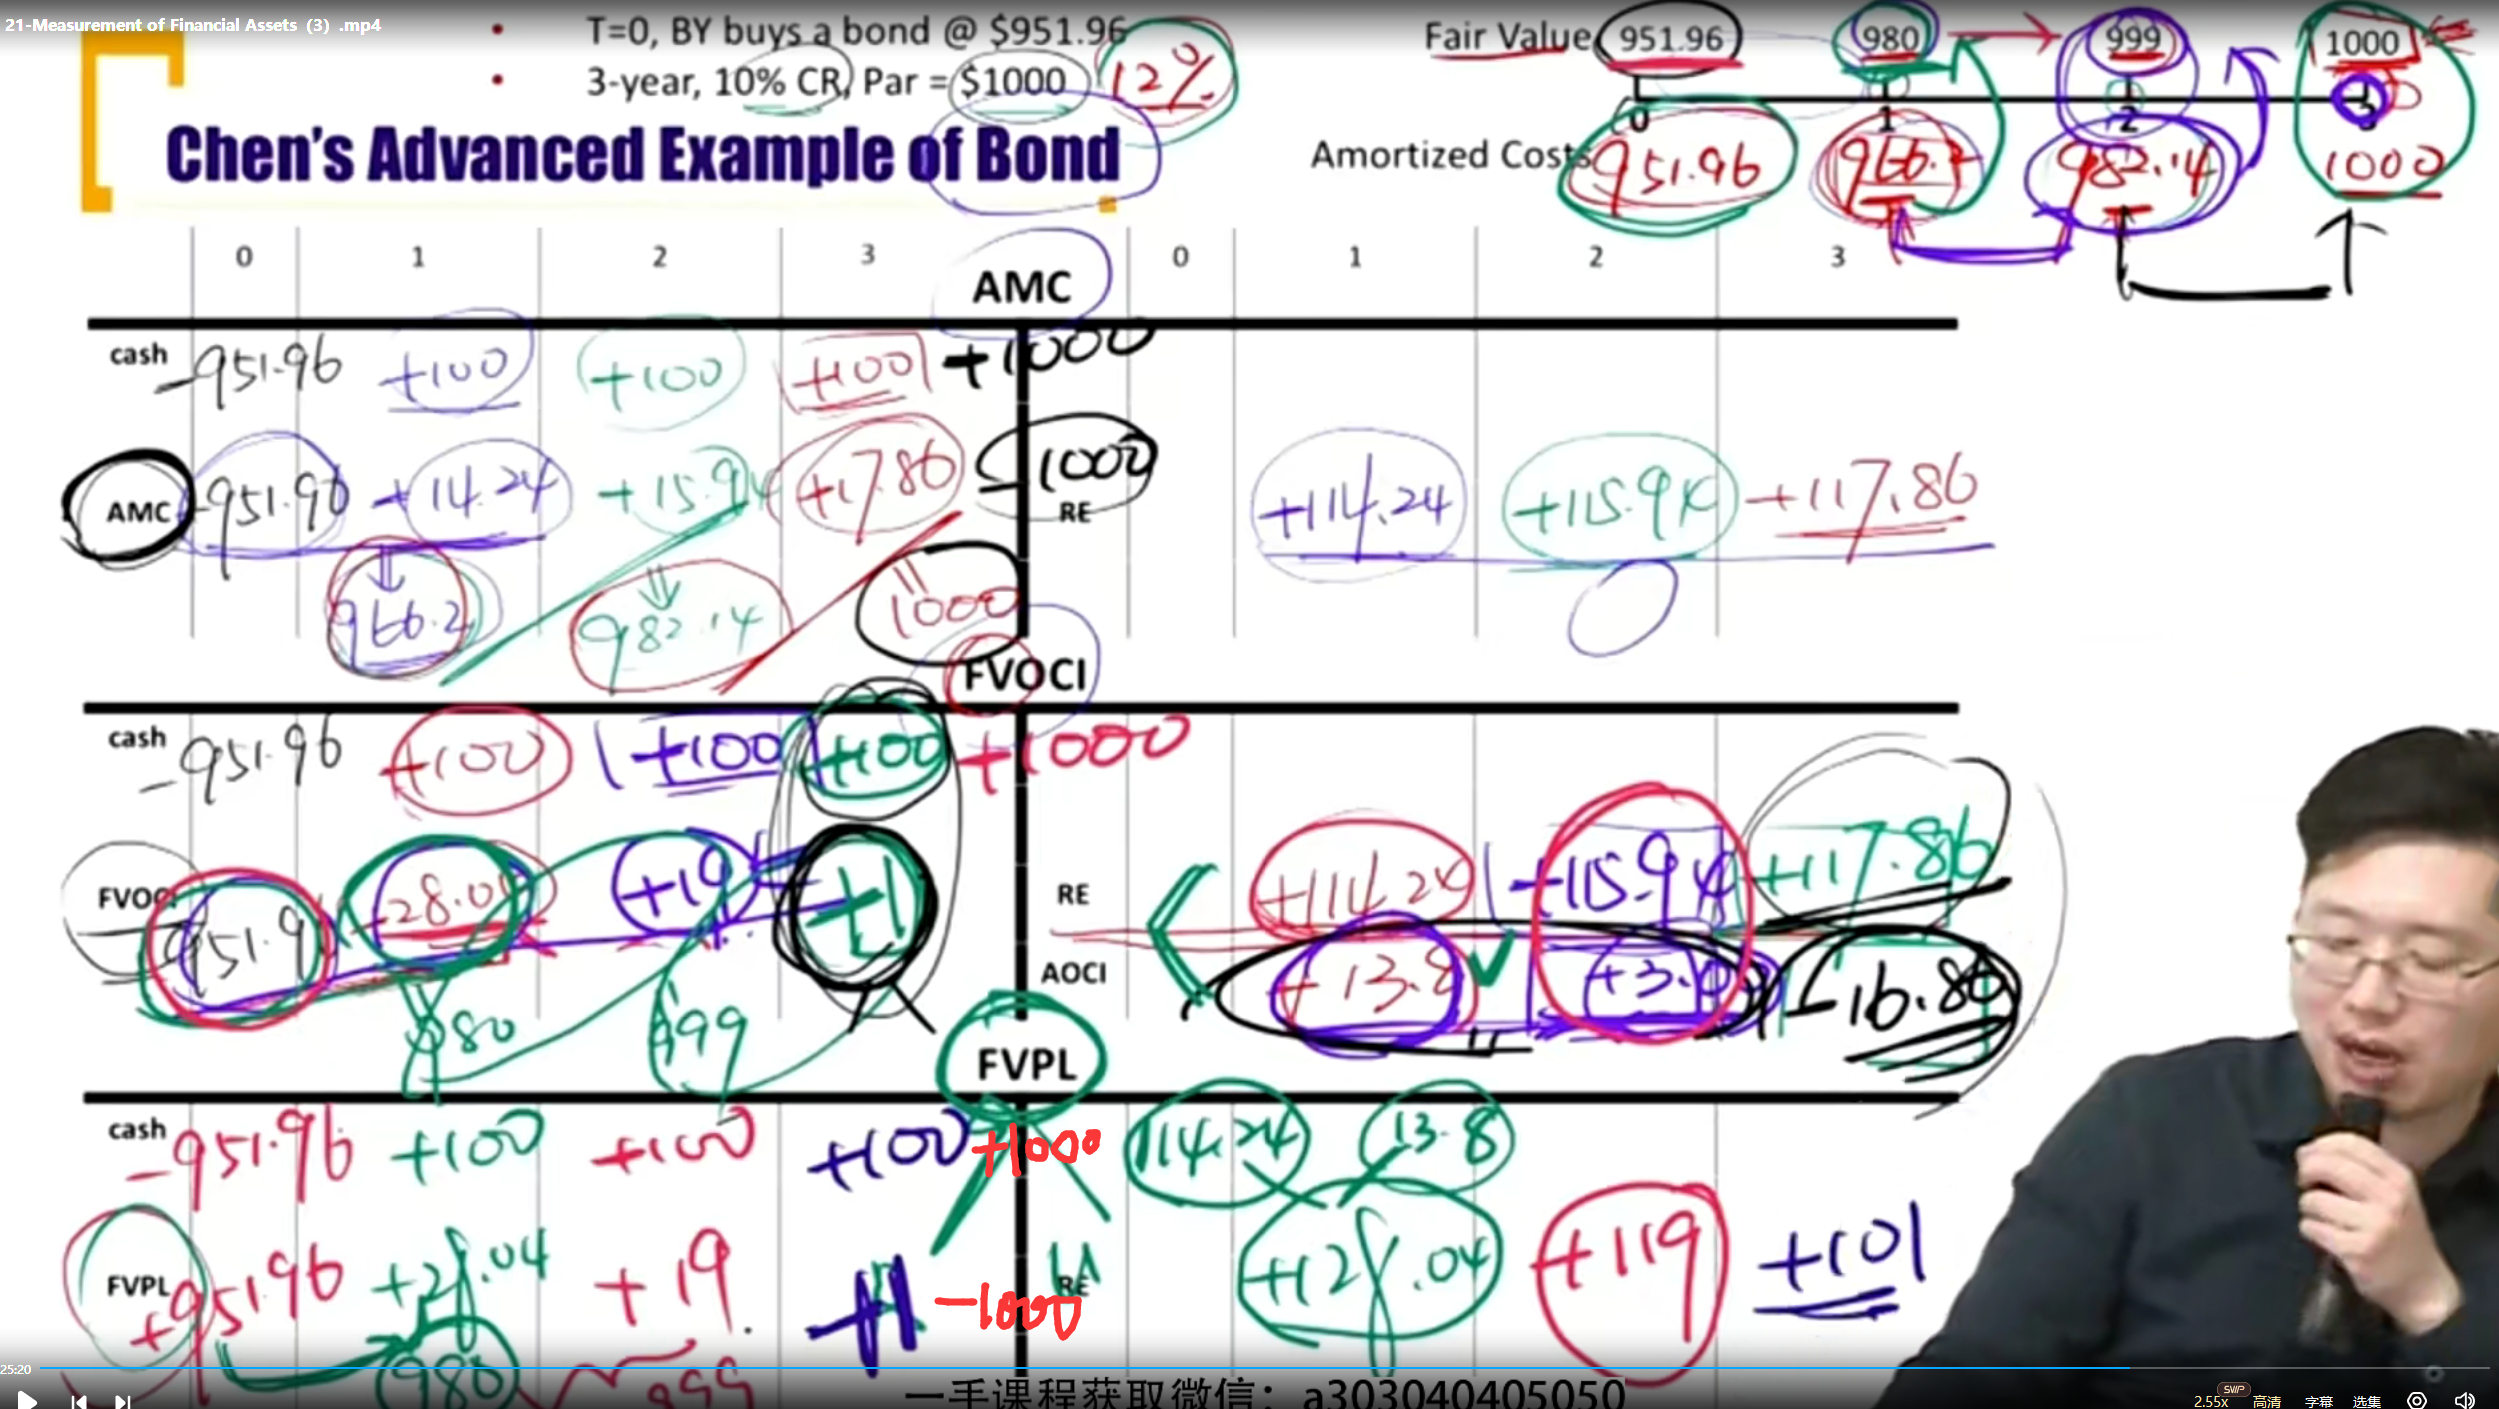 21-Measurement of Financial Assets（3）.mp4
• T=0, BY buys a bond @ $951.96
• 3-year, 10% CR, Par = $1000 12%
Chen's Advanced Example of Bond
Fair Value 951.96 980 999 1000
0 1 2 3
Amortized Costs 951.96 966.2 982.14 1000
0 1 2 3 AMC 0 1 2 3
cash -951.96 +100 +100 +100 +1000
AMC 951.96 +14.24 +15.94 +17.86 -1000
RE +114.24 +115.94 +117.86
966.2 982.14 1000
FVOCI
cash -951.96 +100 +100 +100 +1000
FVOCI 951.9 28.0 +19 +1
RE +114.24 +115.94 +117.86
AOCI +13.8 +3. -16.86
980 999
FVPL
cash -951.96 +100 +100 +100 +1000 114.24 13.8
FVPL +951.96 +28.04 +19 -1000
RE +128.04 +119 +101
980 999
25:20
一手课程获取微信：a303040405050
2.55x SVIP 高清 字幕 选集